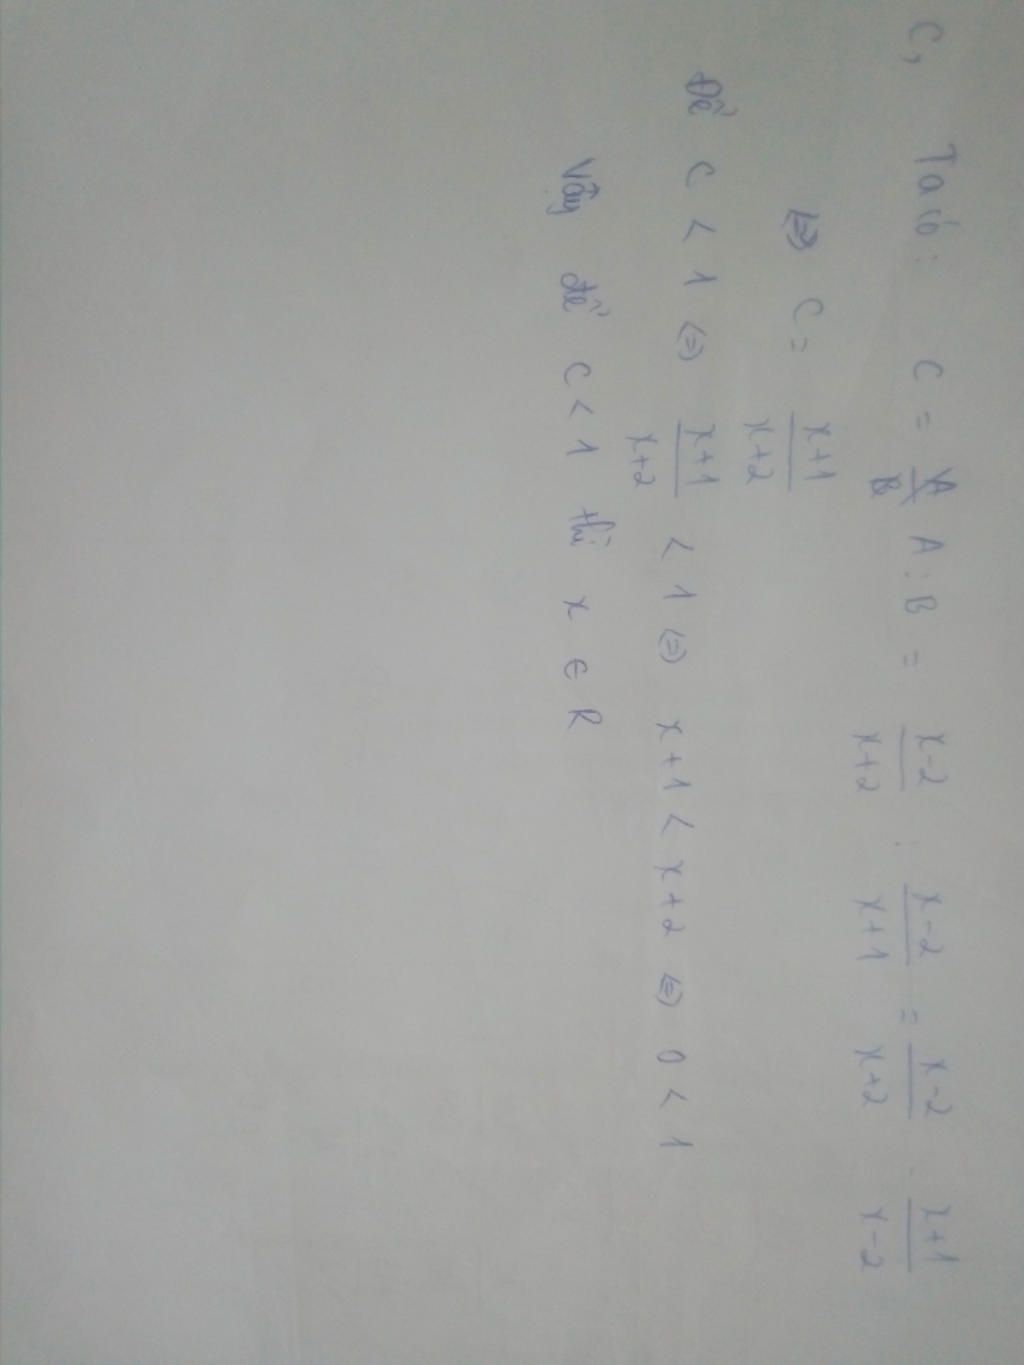 C, Ta có: C = A : B = \frac{x-2}{x+2} : \frac{x-2}{x+1} = \frac{x-2}{x+2} . \frac{x+1}{x-2}
<=> C = \frac{x+1}{x+2}
Để C < 1 <=> \frac{x+1}{x+2} < 1 <=> x+1 < x+2 <=> 0 < 1
Vậy để C < 1 thì x ∈ R